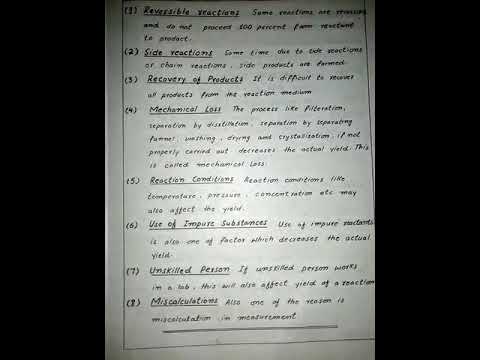 (1) Reversible reactions Some reactions are reversible
and do not proceed 100 percent from reactant
to product.
(2) Side reactions Some time due to side reactions
or chain reactions, side products are formed.
(3) Recovery of Products It is difficult to recover
all products from the reaction medium
(4) Mechanical Loss The process like filteration,
separation by disstillation, separation by separating
funnel, washing, drying and crystallization, if not
properly carried out decreases the actual yield. This
is called mechanical loss.
(5) Reaction Conditions Reaction conditions like
temperature, pressure, concentration etc may
also affect the yield.
(6) Use of Impure Substances Use of impure reactants
is also one of factor which decreases the actual
yield.
(7) Unskilled Person If unskilled person works
in a lab, this will also affect yield of a reaction
(8) Miscalculations Also one of the reason is
miscalculation in measurement